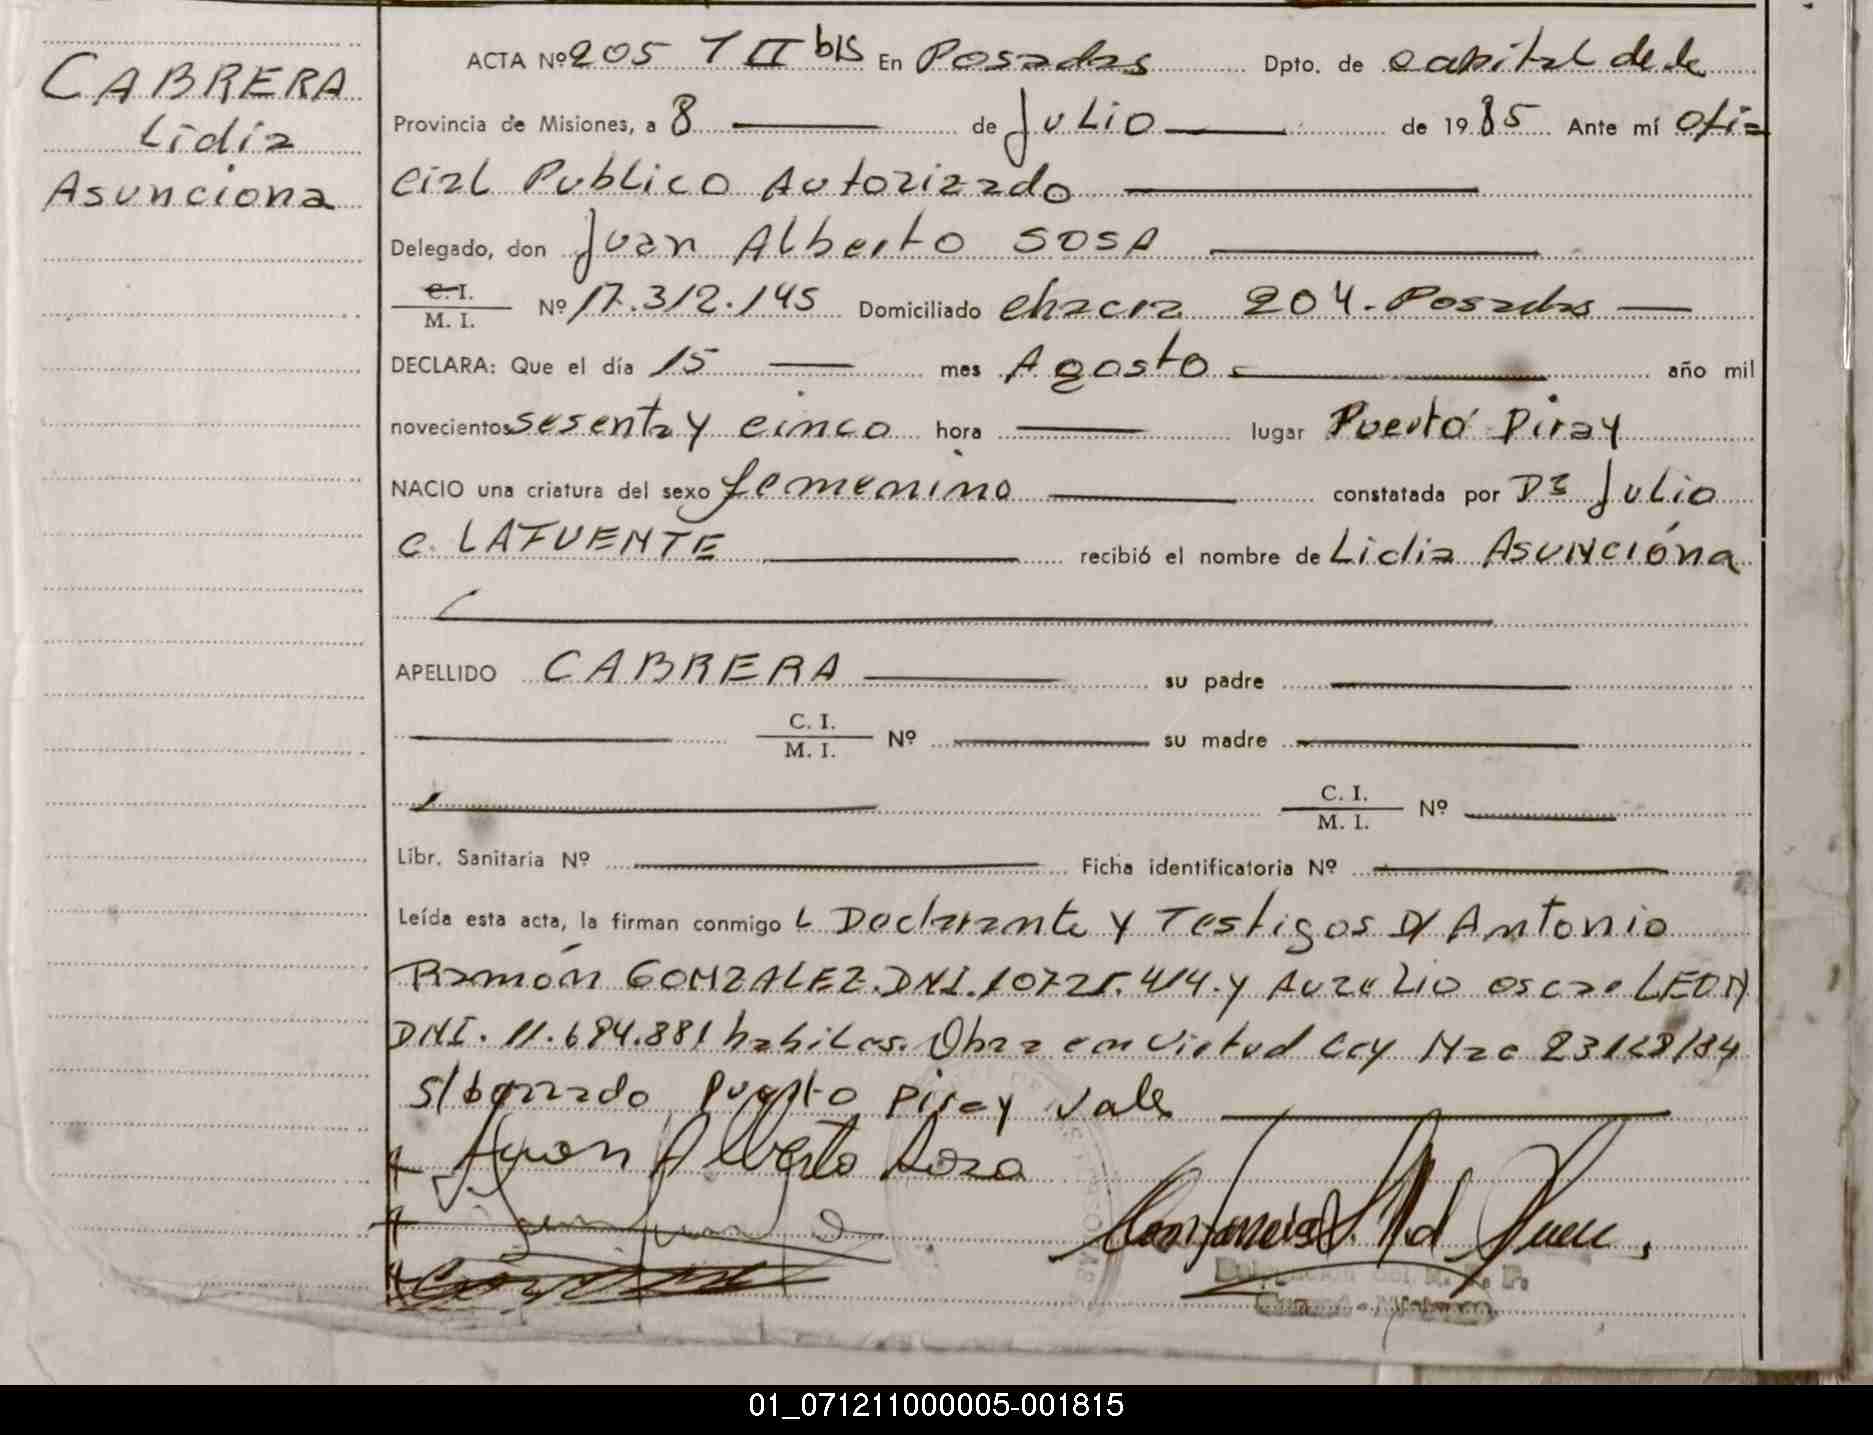 CABRERA
Lidia
Asunciona
ACTA Nº 205 T II bis En Posadas Dpto. de capital de la
Provincia de Misiones, a 8 de Julio de 1985 Ante mí ofi=
cial Publico Autorizado
Delegado, don Juan Alberto SOSA
C. I.
M. I. Nº 17.312.145 Domiciliado chacra 204. Posadas
DECLARA: Que el día 15 mes Agosto año mil
novecientos sesenta y cinco hora lugar Puerto Piray
NACIO una criatura del sexo femenino constatada por Dr Julio
C. LAFUENTE recibió el nombre de Lidia Asunciona
APELLIDO CABRERA su padre
C. I.
M. I. Nº su madre
C. I.
M. I. Nº
Libr. Sanitaria Nº Ficha identificatoria Nº
Leída esta acta, la firman conmigo L Declarante y Testigos D/ Antonio
Ramón GONZALEZ. DNI. 10725.414. y Aurelio oscar LEON
DNI. 11.694.881 habiles. Obra en virtud Ley Nac 23128/84
S/borrado Puerto Piray vale
Juan Alberto Sosa
01_071211000005-001815